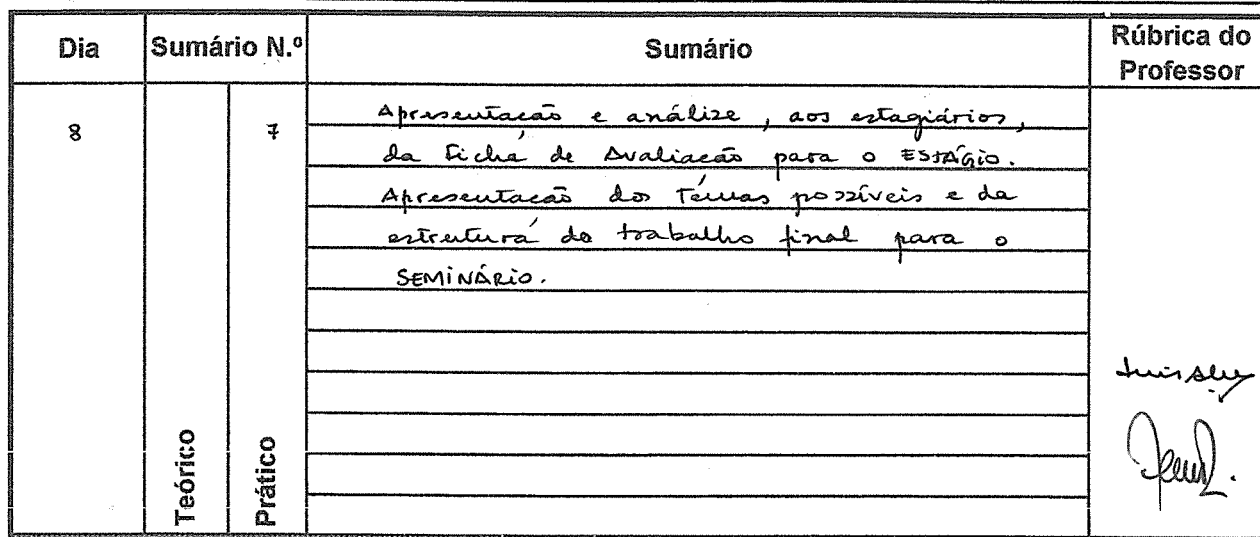 Dia
Sumário N.º
Sumário
Rúbrica do
Professor
8
7
Apresentação e análize, aos estagiários,
da Ficha de Avaliação para o ESTÁGIO.
Apresentação dos Temas possíveis e da
estrutura do trabalho final para o
SEMINÁRIO.
Teórico
Prático